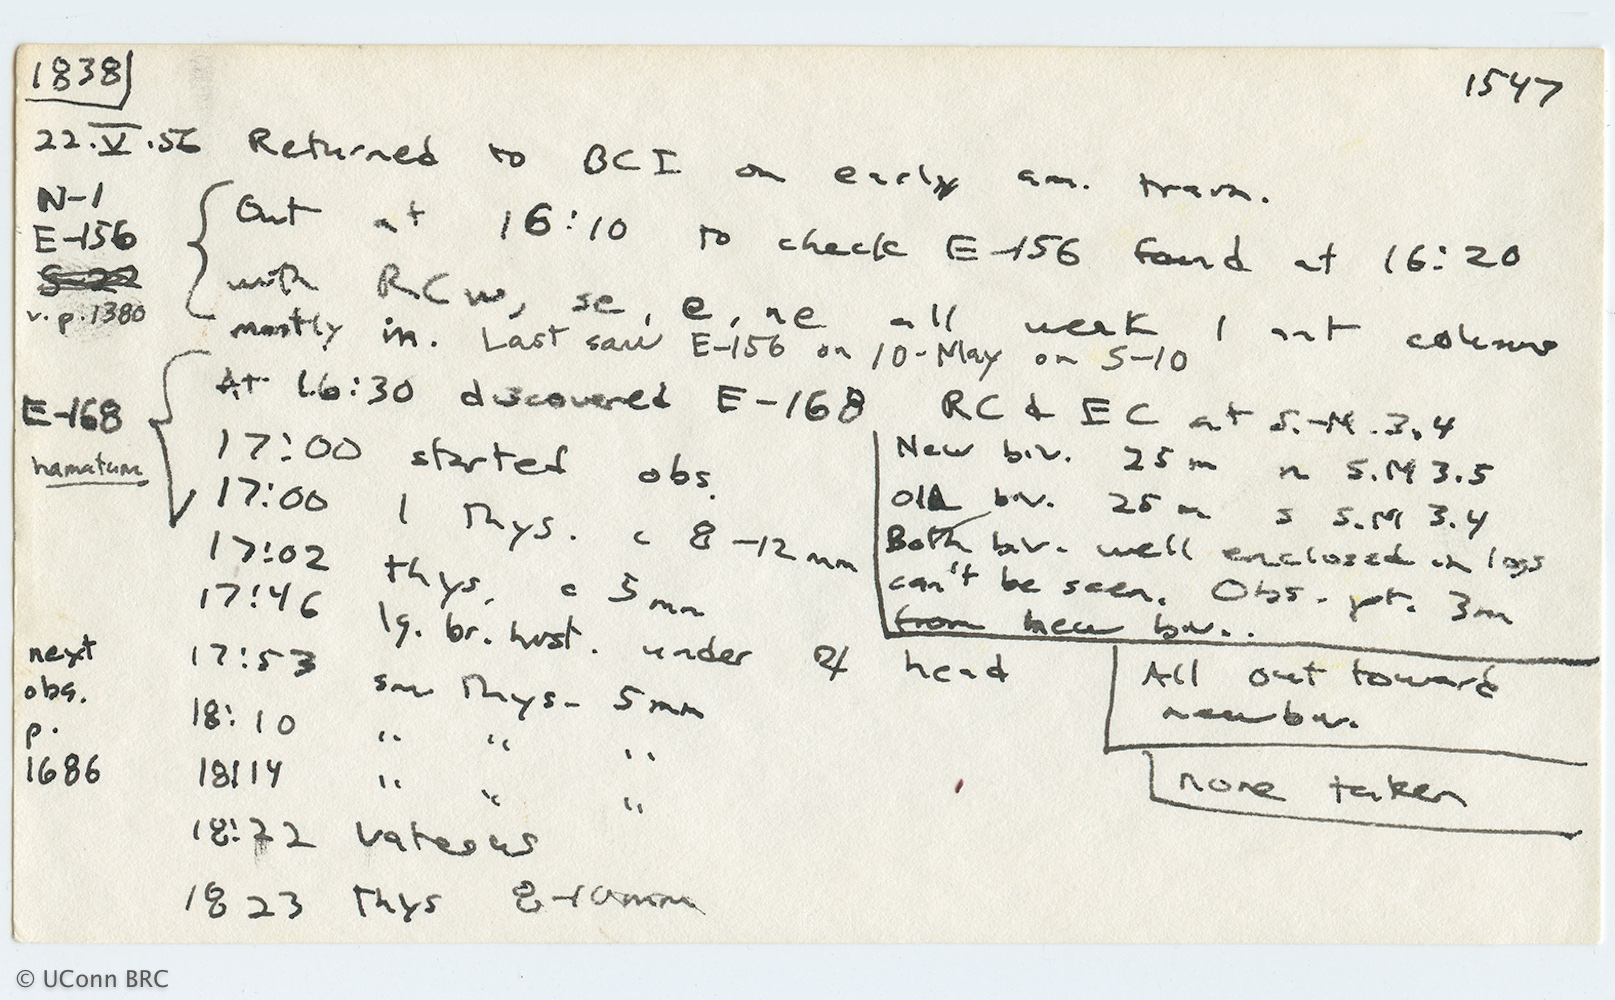 1838
1547
22.V.56 Returned to BCI on early am. train.
N-1
E-156
v. p. 1380
Out at 16:10 to check E-156 found at 16:20
with RC w, se, e, ne all weak 1 ant columns
mostly in. Last saw E-156 on 10-May on S-10
E-168
hamatum
At 16:30 discovered E-168 RC & EC at S.-M. 3.4
17:00 started obs.
17:00 1 Thys. c 8-12 mm
17:02 thys. c 5 mm
17:46 lg. br. hust. under head
17:53 sm Thys- 5mm
18:10 " " "
18:14 " " "
18:22 Vateesus
18 23 Thys 8-10mm
New biv. 25 m n S.M 3.5
Old biv. 25 m s S.M 3.4
Both biv. well enclosed in logs
can't be seen. Obs. pt. 3m
from new biv..
All out toward
new biv.
none taken
next
obs.
p.
1686
© UConn BRC